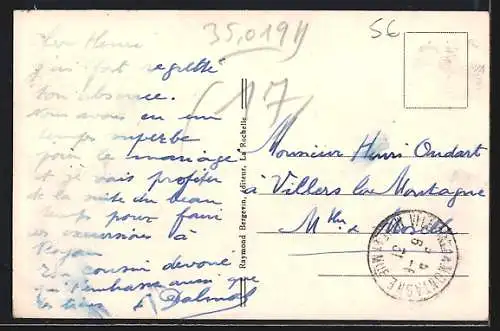 35,01911
56
17
Cher Henri
j'ai fort regretté
ton absence.
Nous avons eu un
temps superbe
pour le mariage
et je vais profiter
de la suite du beau
temps pour faire
excursions à
Royan
Ton cousin devoué
qui t'embrasse ainsi que
les tiens
Raymond Bergevin, éditeur, La Rochelle
Monsieur Henri Oudart
à Villers la Montagne
Mthe & Moselle